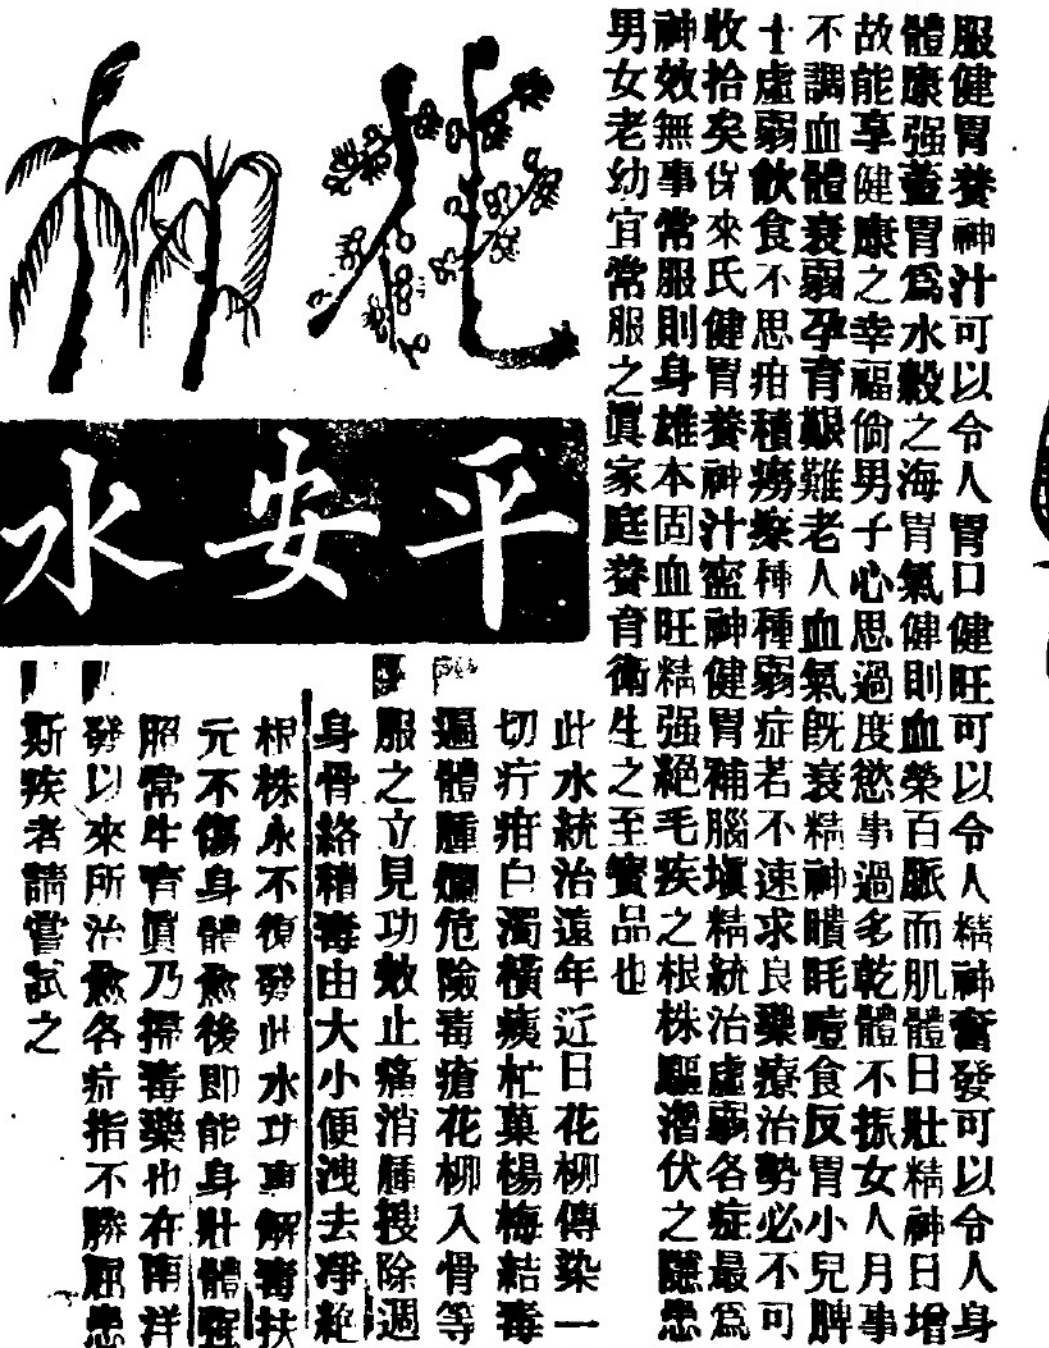 服健胃養神汁可以令人胃口健旺可以令人精神奮發可以令人身
體康强蓋胃為水穀之海胃氣健則血榮百脈而肌體日壯精神日增
故能享健康之幸福倘男子心思過度慾事過多乾體不振女人月事
不調血體衰弱孕育艱難老人血氣既衰精神瞶眊噎食反胃小兒脾
十虛弱飲食不思疳積癆瘵種種弱症若不速求良藥療治勢必不可
收拾矣保來氏健胃養神汁寧神健胃補腦塡精統治虛弱各症最為
神效無事常服則身雄本固血旺精强絕毛疾之根株驅潛伏之隱患
男女老幼宜常服之眞家庭養育衛生之至寳品也
花柳
平安水
此水統治遠年近日花柳傳染一
切疔疳白濁橫痍杧菓楊梅結毒
遍體腫爛危險毒瘡花柳入骨等
服之立見功效止痛消腫搜除週
身骨絡積毒由大小便洩去凈絕
根株永不復發此水功專解毒扶
元不傷身體愈後即能身壯體強
照常生育眞乃掃毒藥也在南洋
發以來所治愈各症指不勝屈患
斯疾者請嘗試之